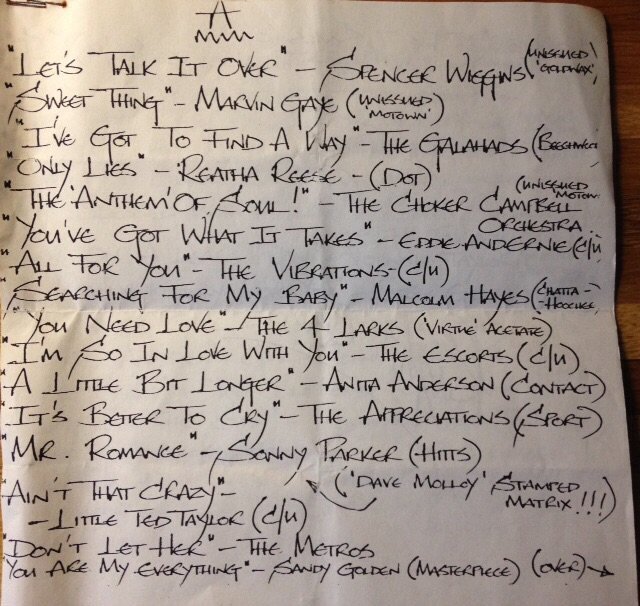 A
"Let's Talk It Over" - Spencer Wiggins (Unissued 'Goldwax')
"Sweet Thing" - Marvin Gaye (Unissued 'Motown')
"I've Got To Find A Way" - The Galahads (Beechwood
"Only Lies" - Reatha Reese - (Dot)
"The 'Anthem' Of Soul!" - The Choker Campbell Orchestra (Unissued 'Motown'
"You've Got What It Takes" - Eddie Andernie (C/U
"All For You" - The Vibrations - (C/U)
"Searching For My Baby" - Malcolm Hayes (Chatta-Hoochee
"You Need Love" - The 4 Larks ('Virtue' Acetate)
"I'm So In Love With You" - The Escorts (C/U)
"A Little Bit Longer" - Anita Anderson (Contact)
"It's Beter To Cry" - The Appreciations (Sport)
"Mr. Romance" - Sonny Parker (Hitts)
('Dave Molloy' Stamped Matrix!!!)
"Ain't That Crazy" -
- Little Ted Taylor (C/U)
"Don't Let Her" - The Metros
"You Are My Everything" - Sandy Golden (Masterpiece) (Over) →